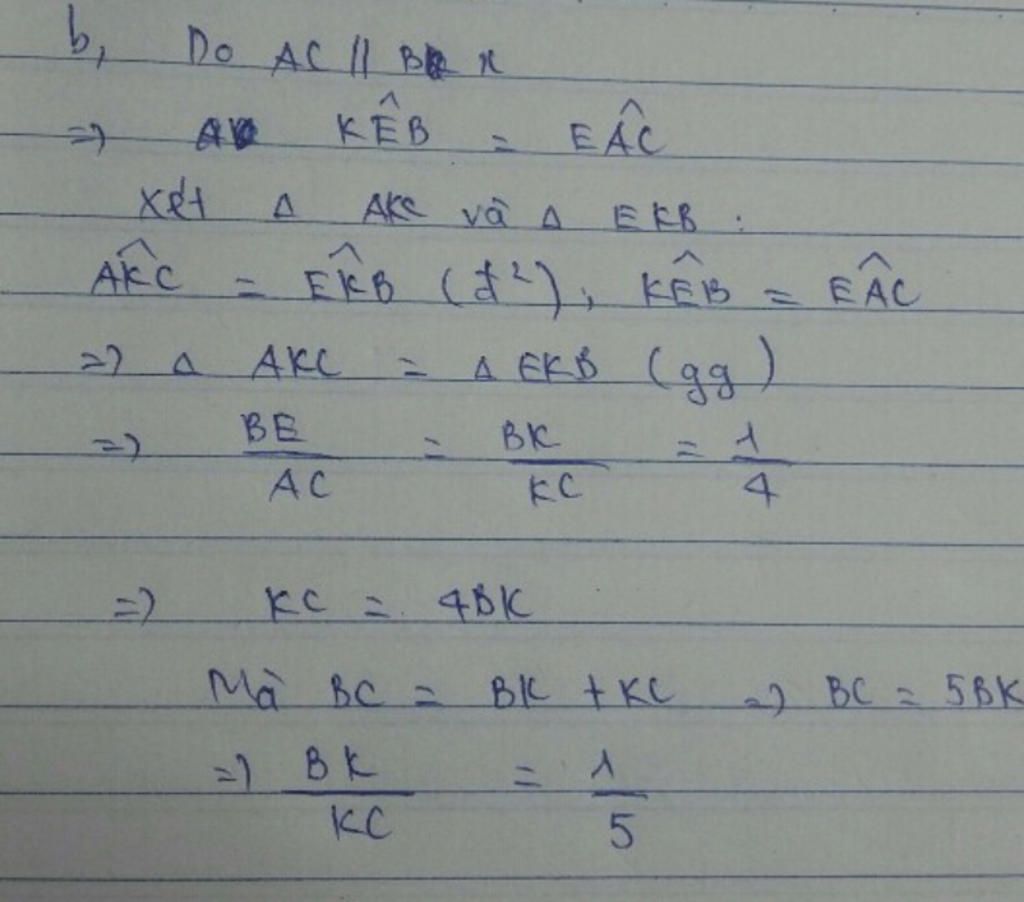 b, Do AC // B x
=> KÊB = EÂC
Xét Δ AKC và Δ EKB :
AK̂C = EK̂B (đ²), KÊB = EÂC
=> Δ AKC = Δ EKB (gg)
=> BE/AC = BK/KC = 1/4
=> KC = 4BK
Mà BC = BK + KC => BC = 5BK
=> BK/KC = 1/5